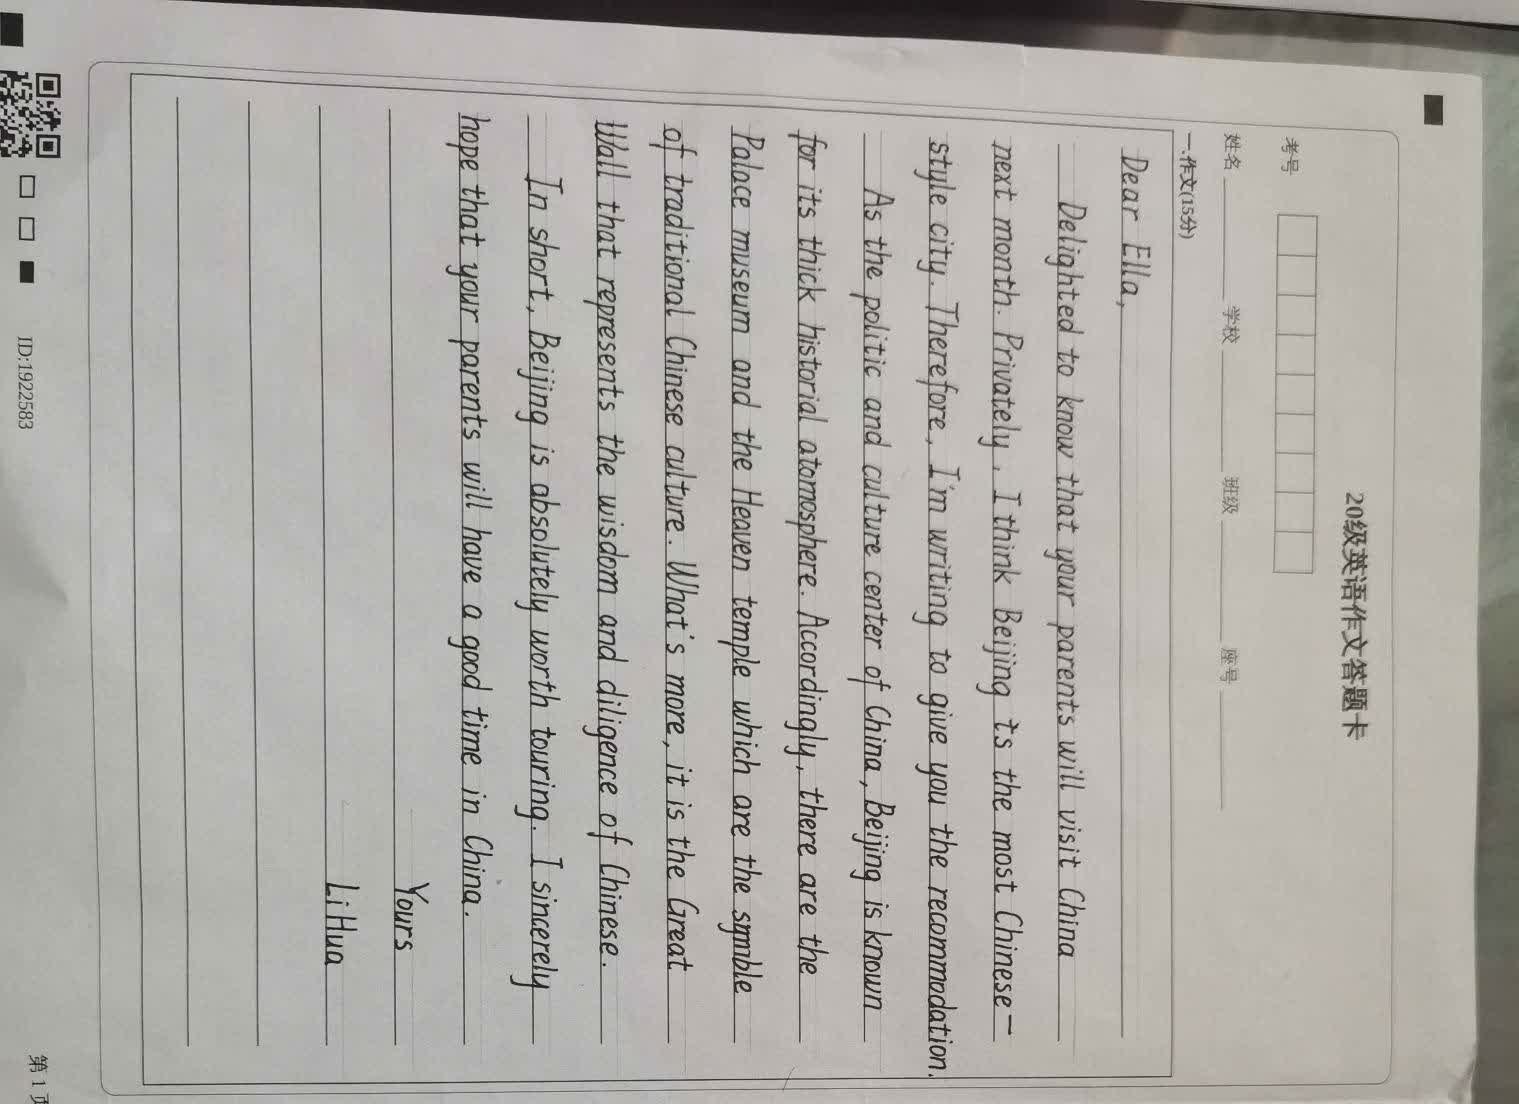 20级英语作文答题卡
考号
姓名 学校 班级 座号
一.作文(15分)
Dear Ella,
Delighted to know that your parents will visit China
next month. Privately, I think Beijing is the most Chinese-
style city. Therefore, I'm writing to give you the recommodation.
As the politic and culture center of China, Beijing is known
for its thick historial atomosphere. Accordingly, there are the
Palace museum and the Heaven temple which are the symble
of traditional Chinese culture. What's more, it is the Great
Wall that represents the wisdom and diligence of Chinese.
In short, Beijing is absolutely worth touring. I sincerely
hope that your parents will have a good time in China.
Yours
Li Hua
ID:1922583
第1页